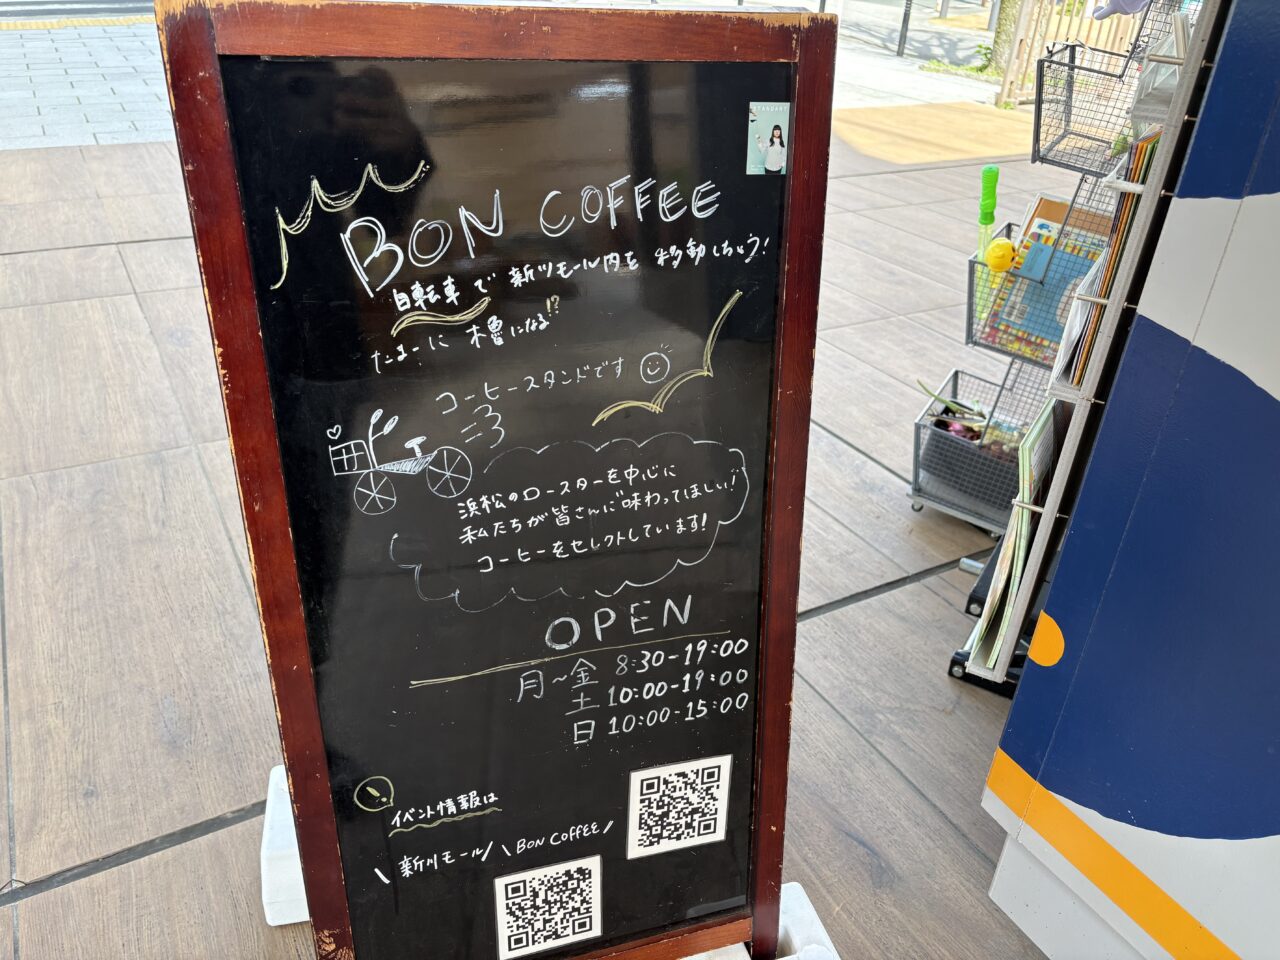 STANDART
BON COFFEE
自転車で新川モール内を移動しちゃう!
たまーに櫓になる!?
コーヒースタンドです
浜松のロースターを中心に
私たちが皆さんに味わってほしい!
コーヒーをセレクトしています!
OPEN
月~金 8:30-19:00
土 10:00-19:00
日 10:00-15:00
イベント情報は
\ 新川モール / \ BON COFFEE /